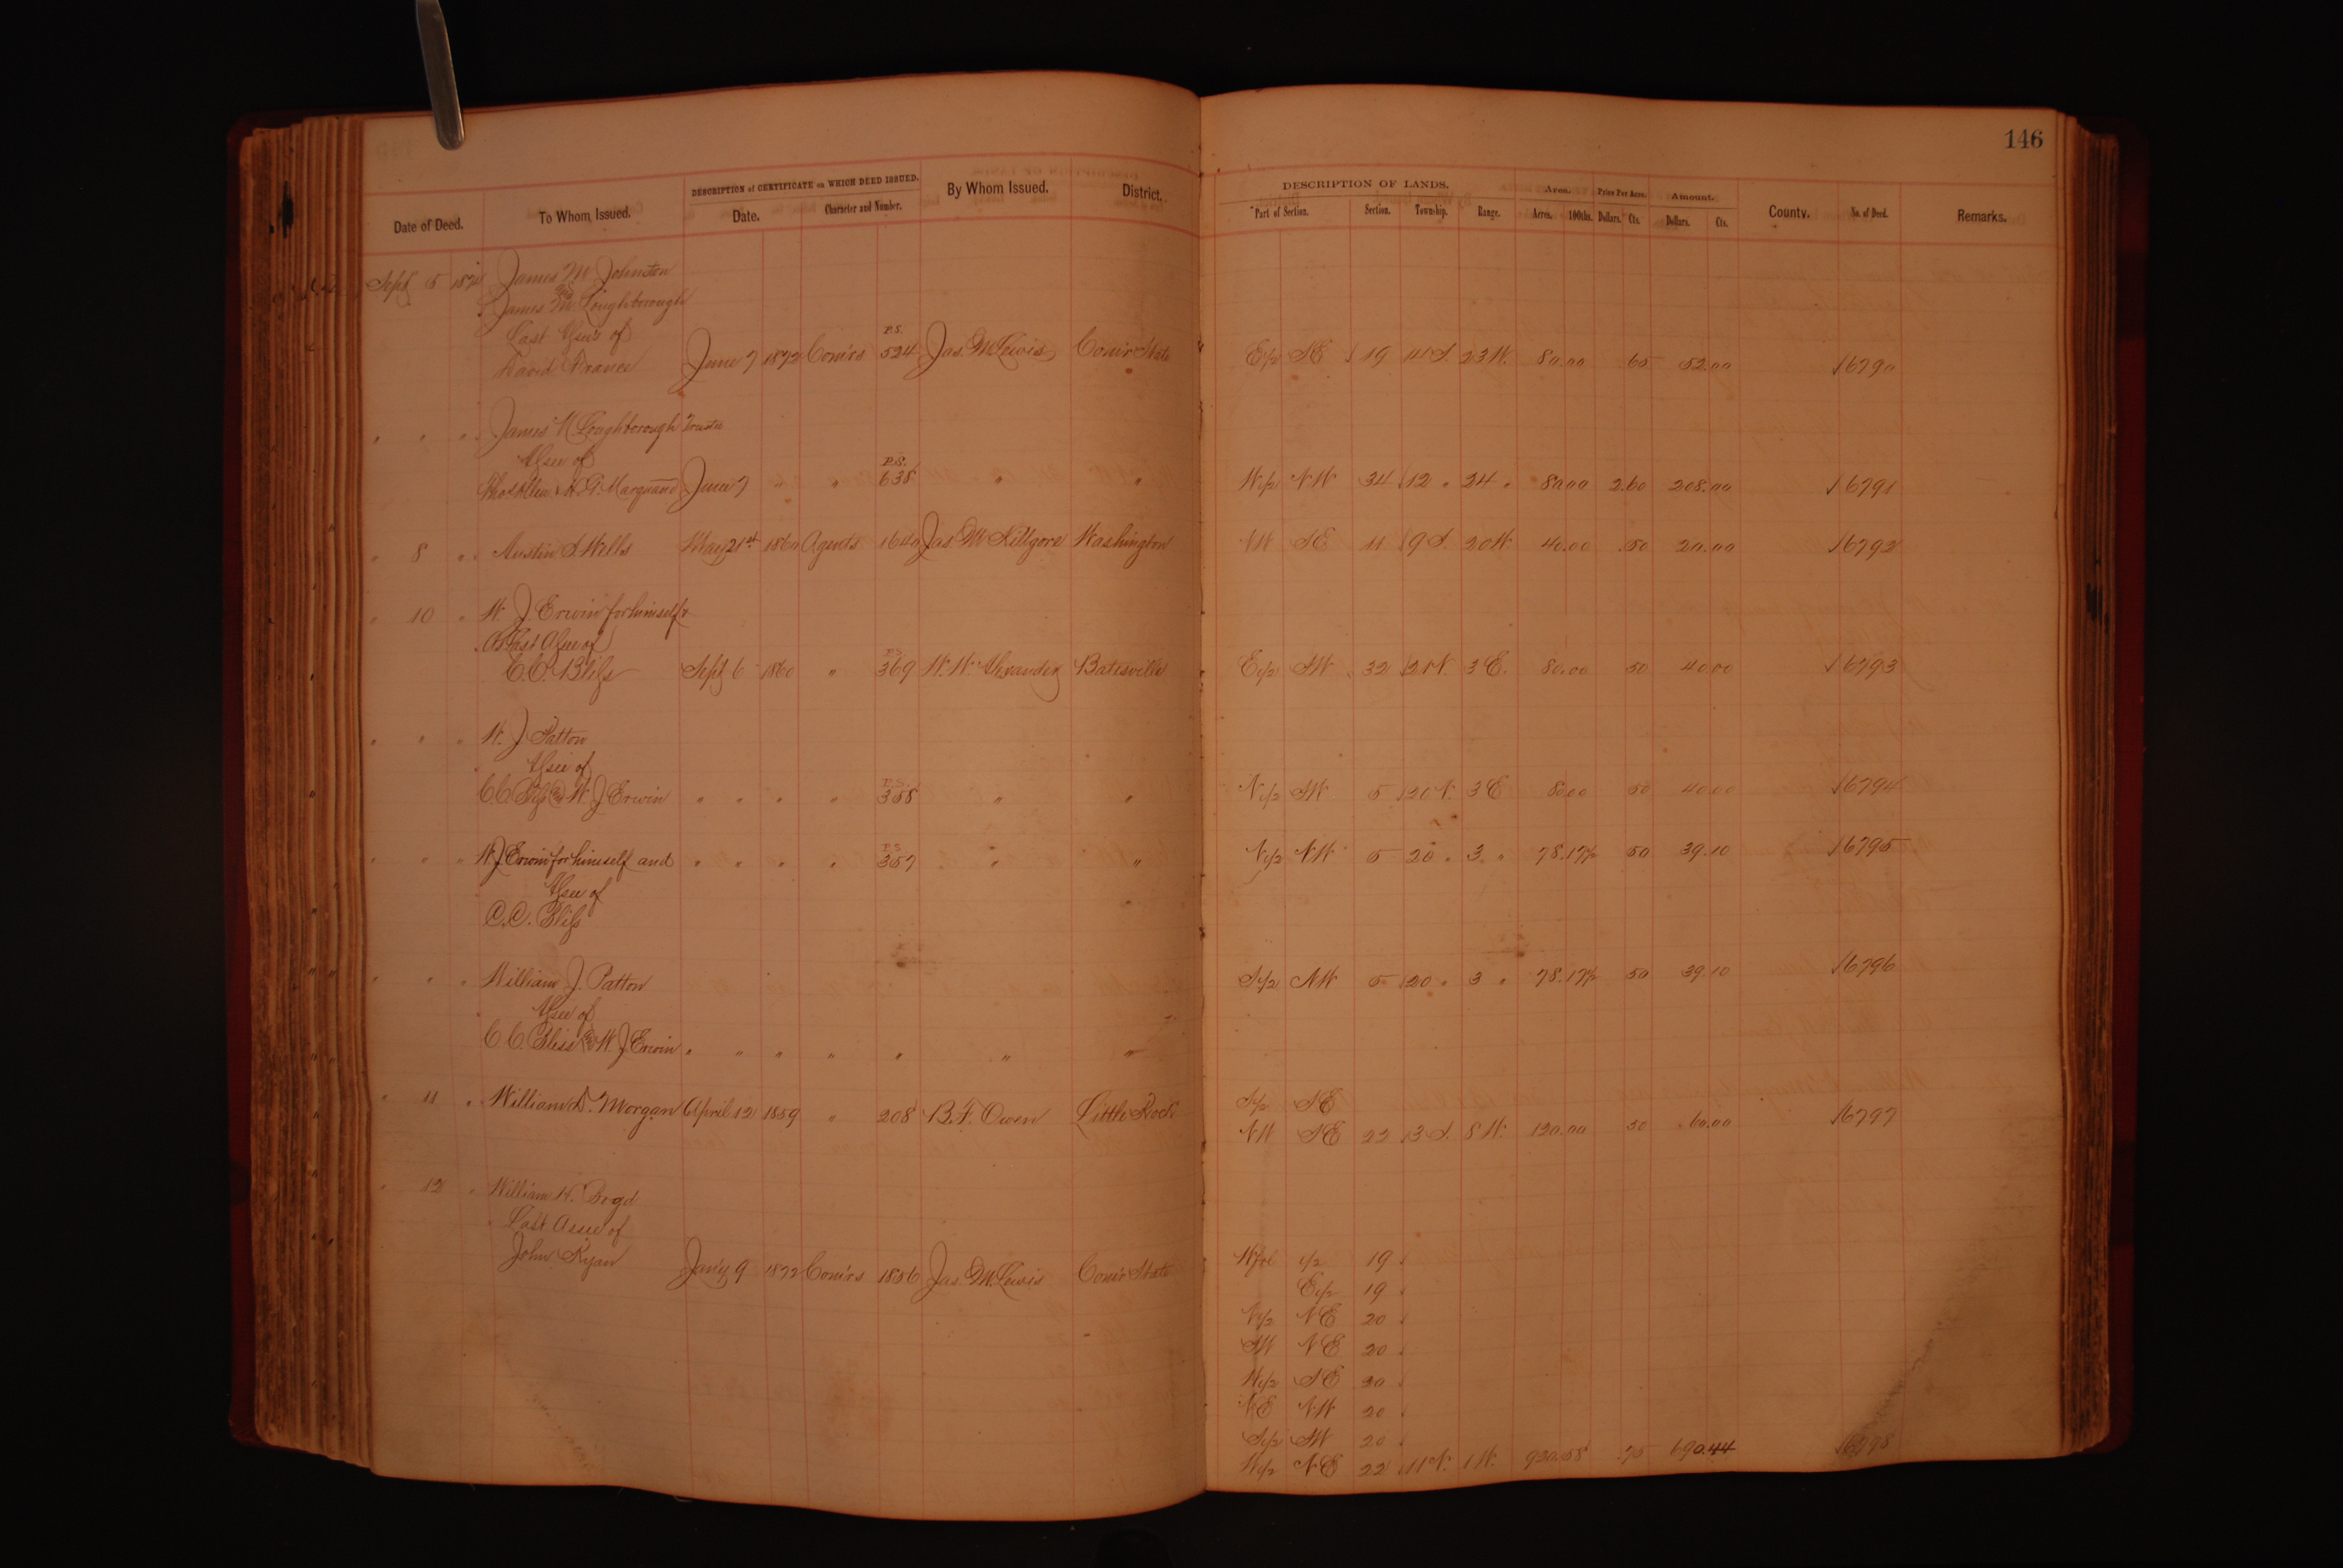 146
DESCRIPTION of CERTIFICATE on WHICH DEED ISSUED. DESCRIPTION OF LANDS. Area. Price Per Acre. Amount.
Date of Deed. To Whom Issued. Date. Character and Number. By Whom Issued. District. Part of Section. Section. Township. Range. Acres. 100ths. Dollars. Cts. Dollars. Cts. County. No. of Deed. Remarks.
Sept 5 1874 James M Johnston
and
James M. Loughborough
Last Assee's of
David France June 7 1872 Com'rs P.S. 524 Jas. M. Lewis Com'r State E1/2 SE 19 11 S. 23 W. 80.00 65 52.00 16790
" " " James M. Loughborough Trustee
Assee of
Thos Allen & H. G. Marquand June 7 " " P.S. 638 " " W1/2 NW 34 12 " 24 " 80.00 2.60 208.00 16791
" 8 " Austin S. Wells May 21st 1860 Agents 1640 Jas. M Killgore Washington NW SE 11 9 S. 20 W. 40.00 .50 20.00 16792
" 10 " W. J. Erwin for himself &
As Last Assee of
C. C. Bliss Sept 6 1860 " P.S. 369 W. W. Alexander Batesville E1/2 SW 32 21 N. 3 E. 80.00 50 40.00 16793
" " " W. J. Patton
Assee of
C C. Bliss and W. J. Erwin " " " " P.S. 358 " " N1/2 SW 5 20 N. 3 E 80.00 50 40.00 16794
" " " W J Erwin for himself and " " " " P.S. 357 " " N1/2 NW 5 20 " 3 " 78.17 1/2 50 39.10 16795
Assee of
C. C. Bliss
" " " William J. Patton S1/2 NW 5 20 " 3 " 78.17 1/2 50 39.10 16796
Assee of
C. C. Bliss and W. J. Erwin " " " " " " "
" 11 " William D. Morgan April 12 1859 " 208 B. F. Owen Little Rock S1/2 SE
NW SE 22 13 S. 8 W. 120.00 50 60.00 16797
" 12 " William H. Boyd
Last Assee of
John Ryan Jan'y 9 1872 Com'rs 1886 Jas. M. Lewis Com'r State W frl 1/2 19
E1/2 19
N1/2 NE 20
SW NE 20
W1/2 SE 20
NE NW 20
S1/2 SW 20
W1/2 NE 22 11 N. 1 W. 920.58 .75 690.44 16798